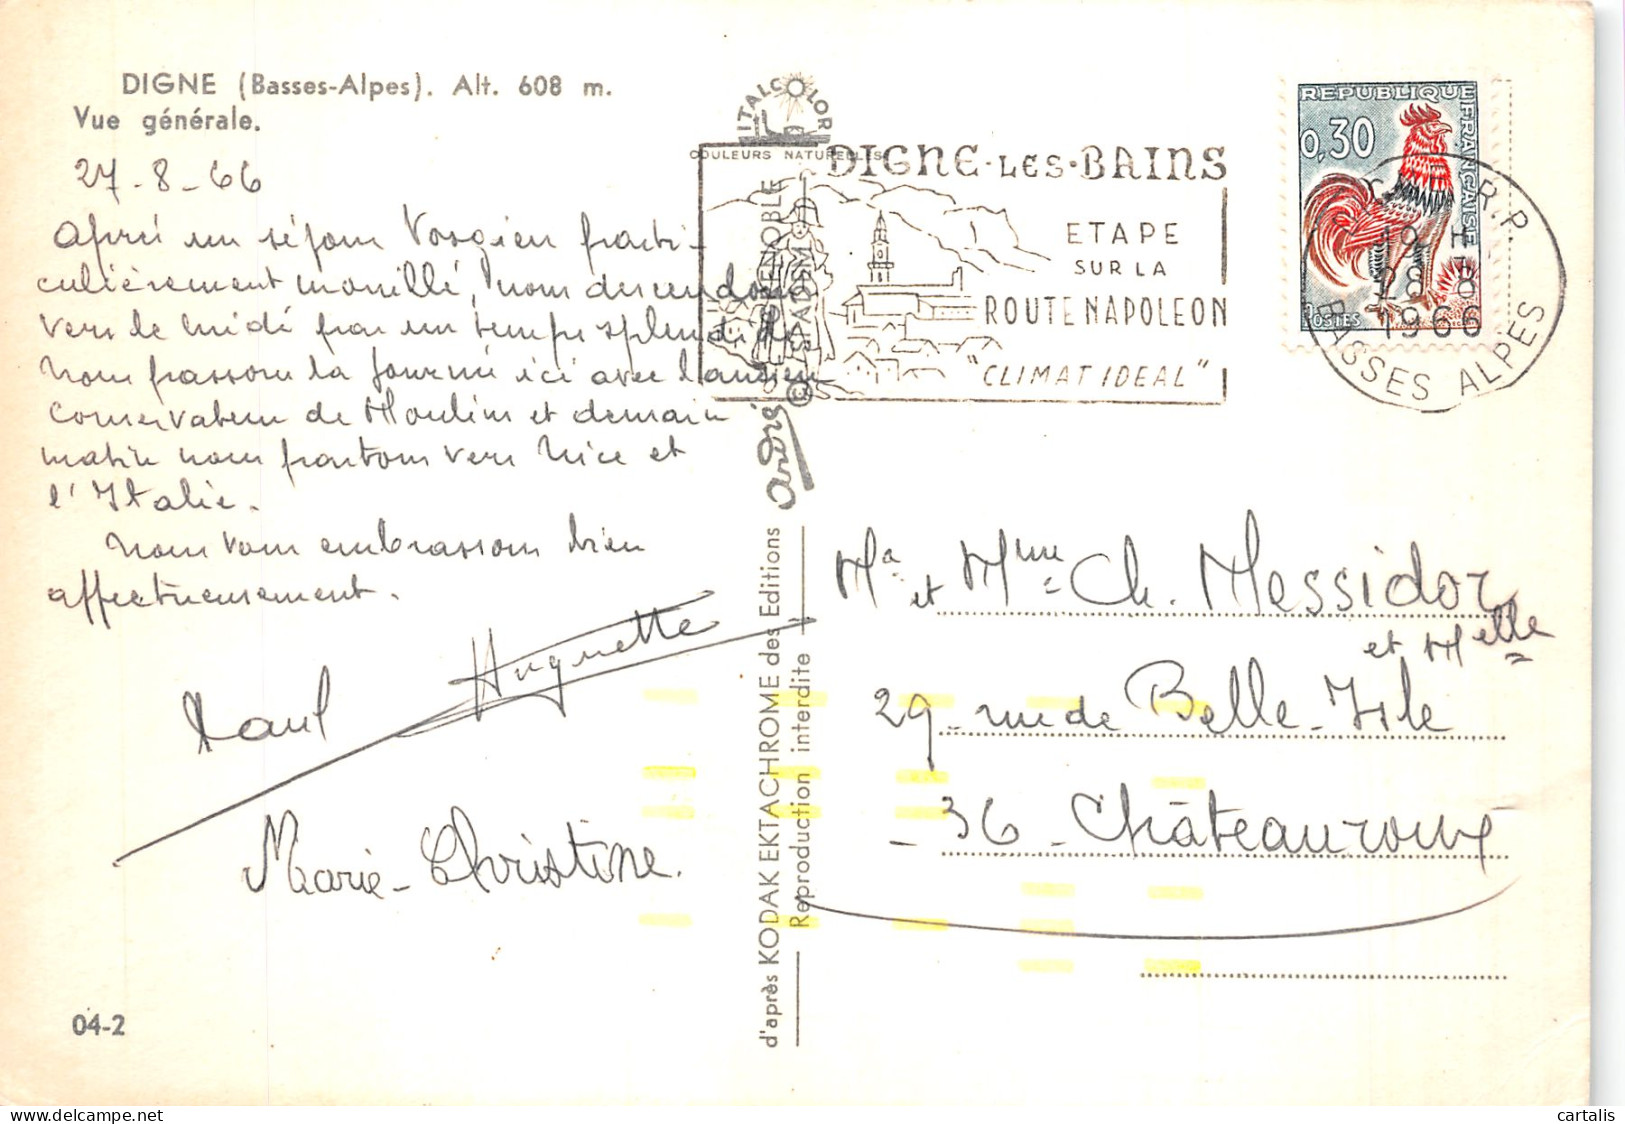 DIGNE (Basses-Alpes). Alt. 608 m.
Vue générale.
27-8-66
Après un séjour Vosgien parti-
culièrement mouillé, nous descendons
vers le midi par un temps splendide
Nous passons la journée ici avec l'ancien
Conservateur de Moulins et demain
matin nous partons vers Nice et
l'Italie.
Nous vous embrassons bien
affectueusement.
Paul Huguette
Marie-Christine.
04-2
ITALCOLOR
COULEURS NATURELLES
DIGNE-LES-BAINS
ETAPE
SUR LA
ROUTE NAPOLEON
"CLIMAT IDEAL"
GRENOBLE
©
d'après KODAK EKTACHROME des Editions
Reproduction interdite
REPUBLIQUE FRANÇAISE
0,30
POSTES
R.P.
19 H
28-8
1966
BASSES ALPES
Mr et Mme Ch. Messidor
et Melle
29-rue de Belle-Isle
-36-Châteauroux
cartalis